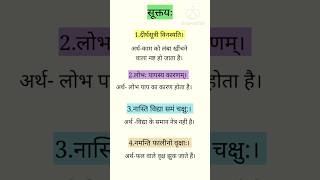 सूक्तय:
1.दीर्घसूत्री विनश्यति।
अर्थ-काम को लंबा खींचने
वाला नष्ट हो जाता है।
2.लोभ: पापस्य कारणम्।
अर्थ- लोभ पाप का कारण होता है।
3.नास्ति विद्या समं चक्षु:।
अर्थ -विद्या के समान नेत्र नहीं है।
4.नमन्ति फलिनो वृक्षा:।
अर्थ-फल वाले वृक्ष झुक जाते हैं।